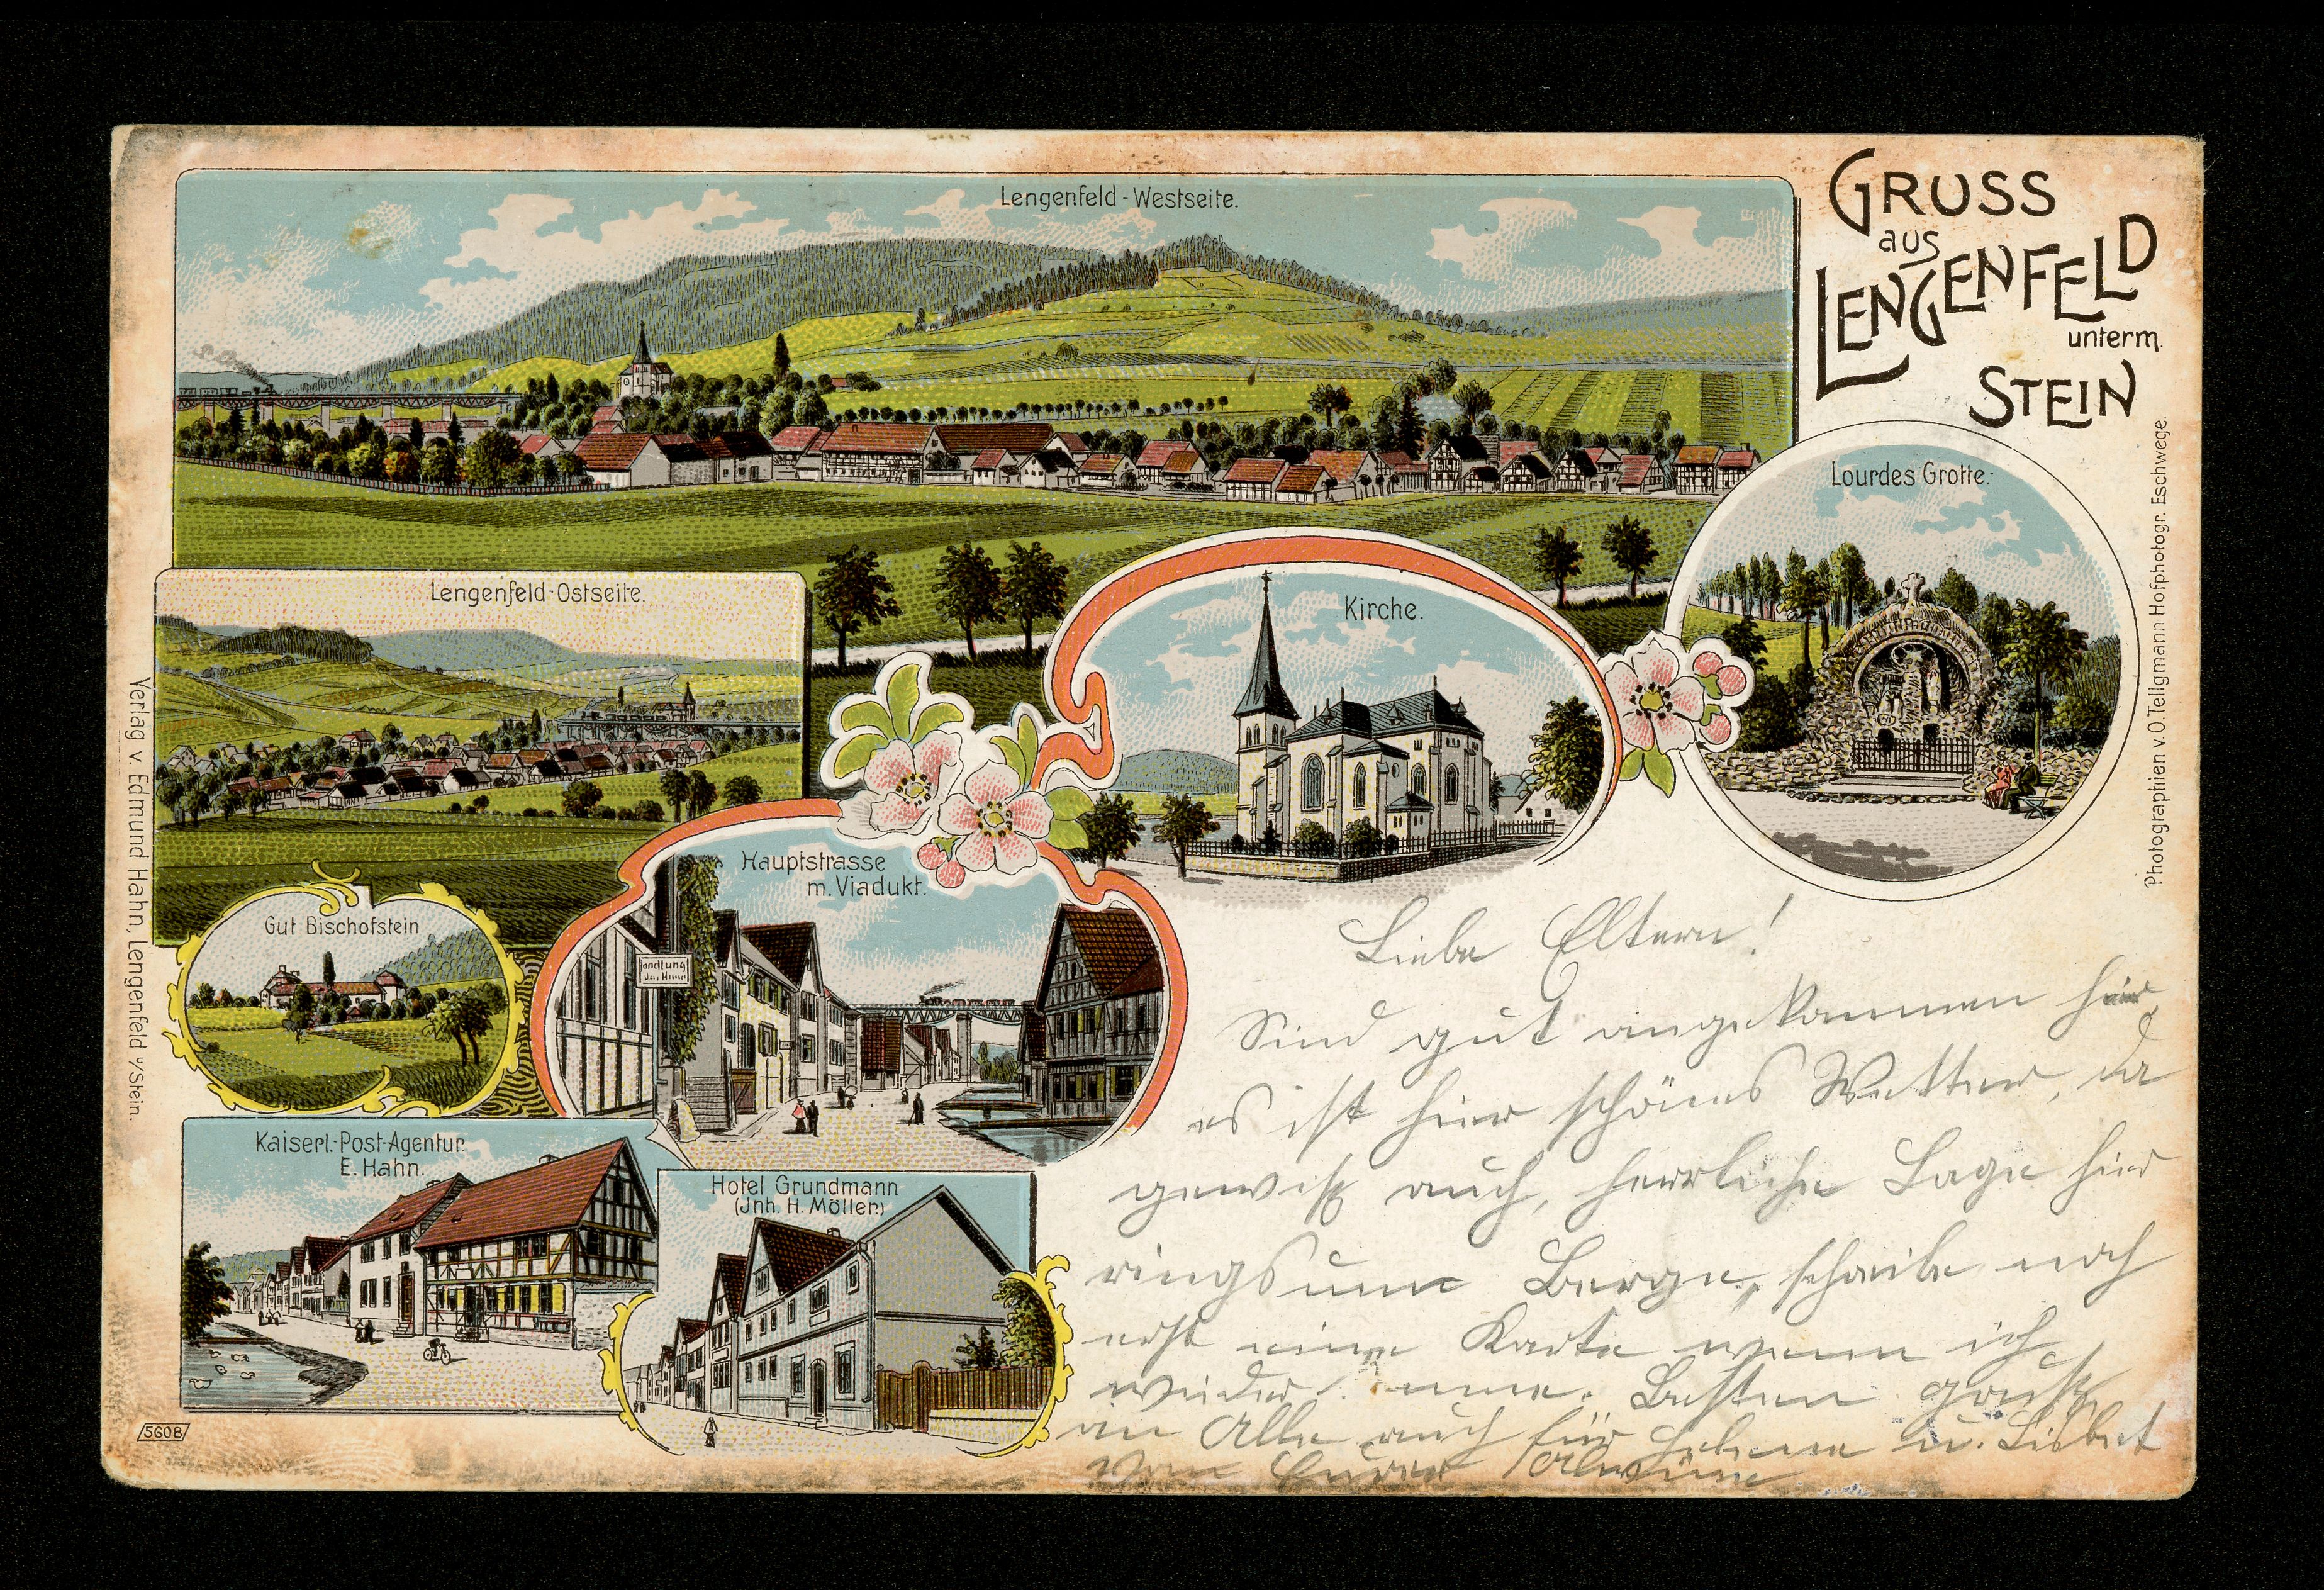 GRUSS
aus
LENGENFELD
unterm
STEIN
Lengenfeld-Westseite.
Lourdes Grotte.
Lengenfeld-Ostseite.
Kirche.
Hauptstrasse
m. Viadukt.
Gut Bischofstein
Kaiserl.-Post-Agentur.
E. Hahn.
Hotel Grundmann
(Jnh. H. Möller)
andlung
Verlag v. Edmund Hahn, Lengenfeld ᵘ/Stein.
Photographien v. O. Tellgmann Hofphotogr. Eschwege.
5608
Liebe Eltern!
Sind gut angekommen hier,
es ist hier schönes Wetter, da
gewiß auch, herrliche Lage hier
ringsum Berge, schreibe noch
erst eine Karte wenn ich
wieder Besten Gruß
an Alle auch für u. Lisbet
von Eurer Alwine